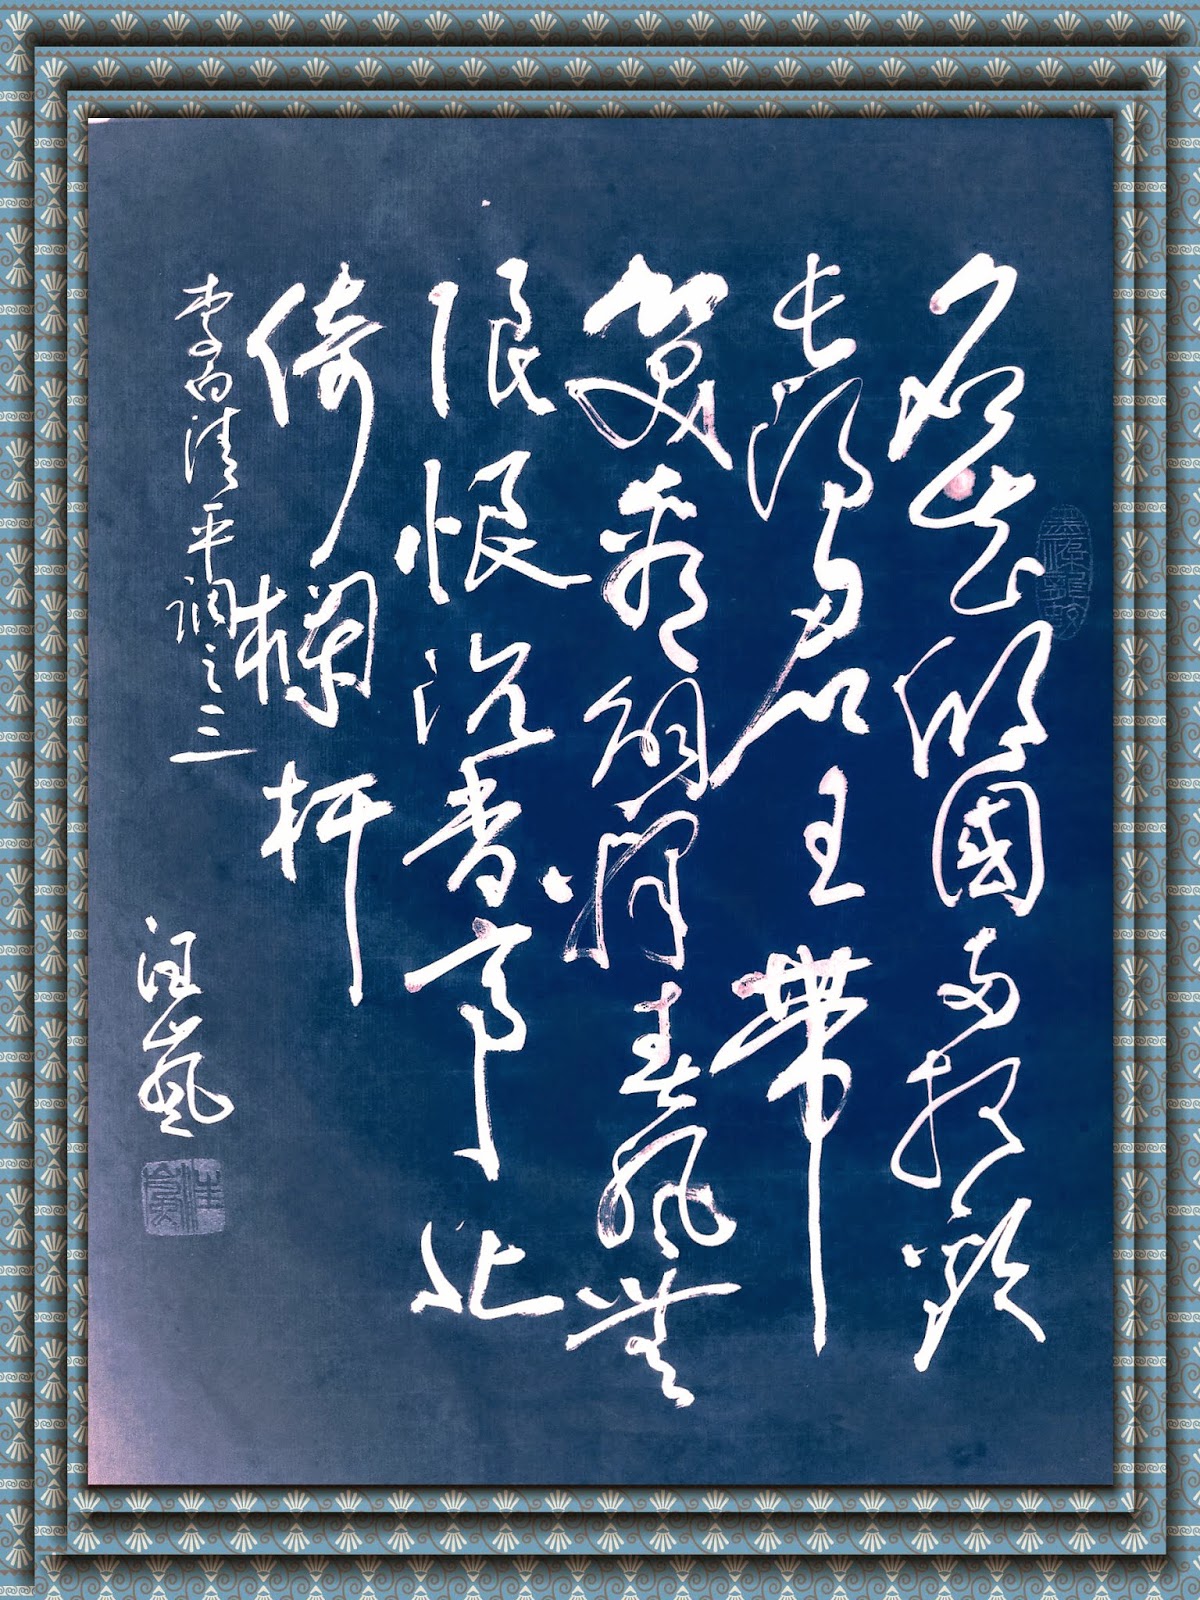 名花傾國兩相歡
長得君王帶
笑看解釋春風無
限恨沉香亭北
倚欄杆
李白清平調之三
汪